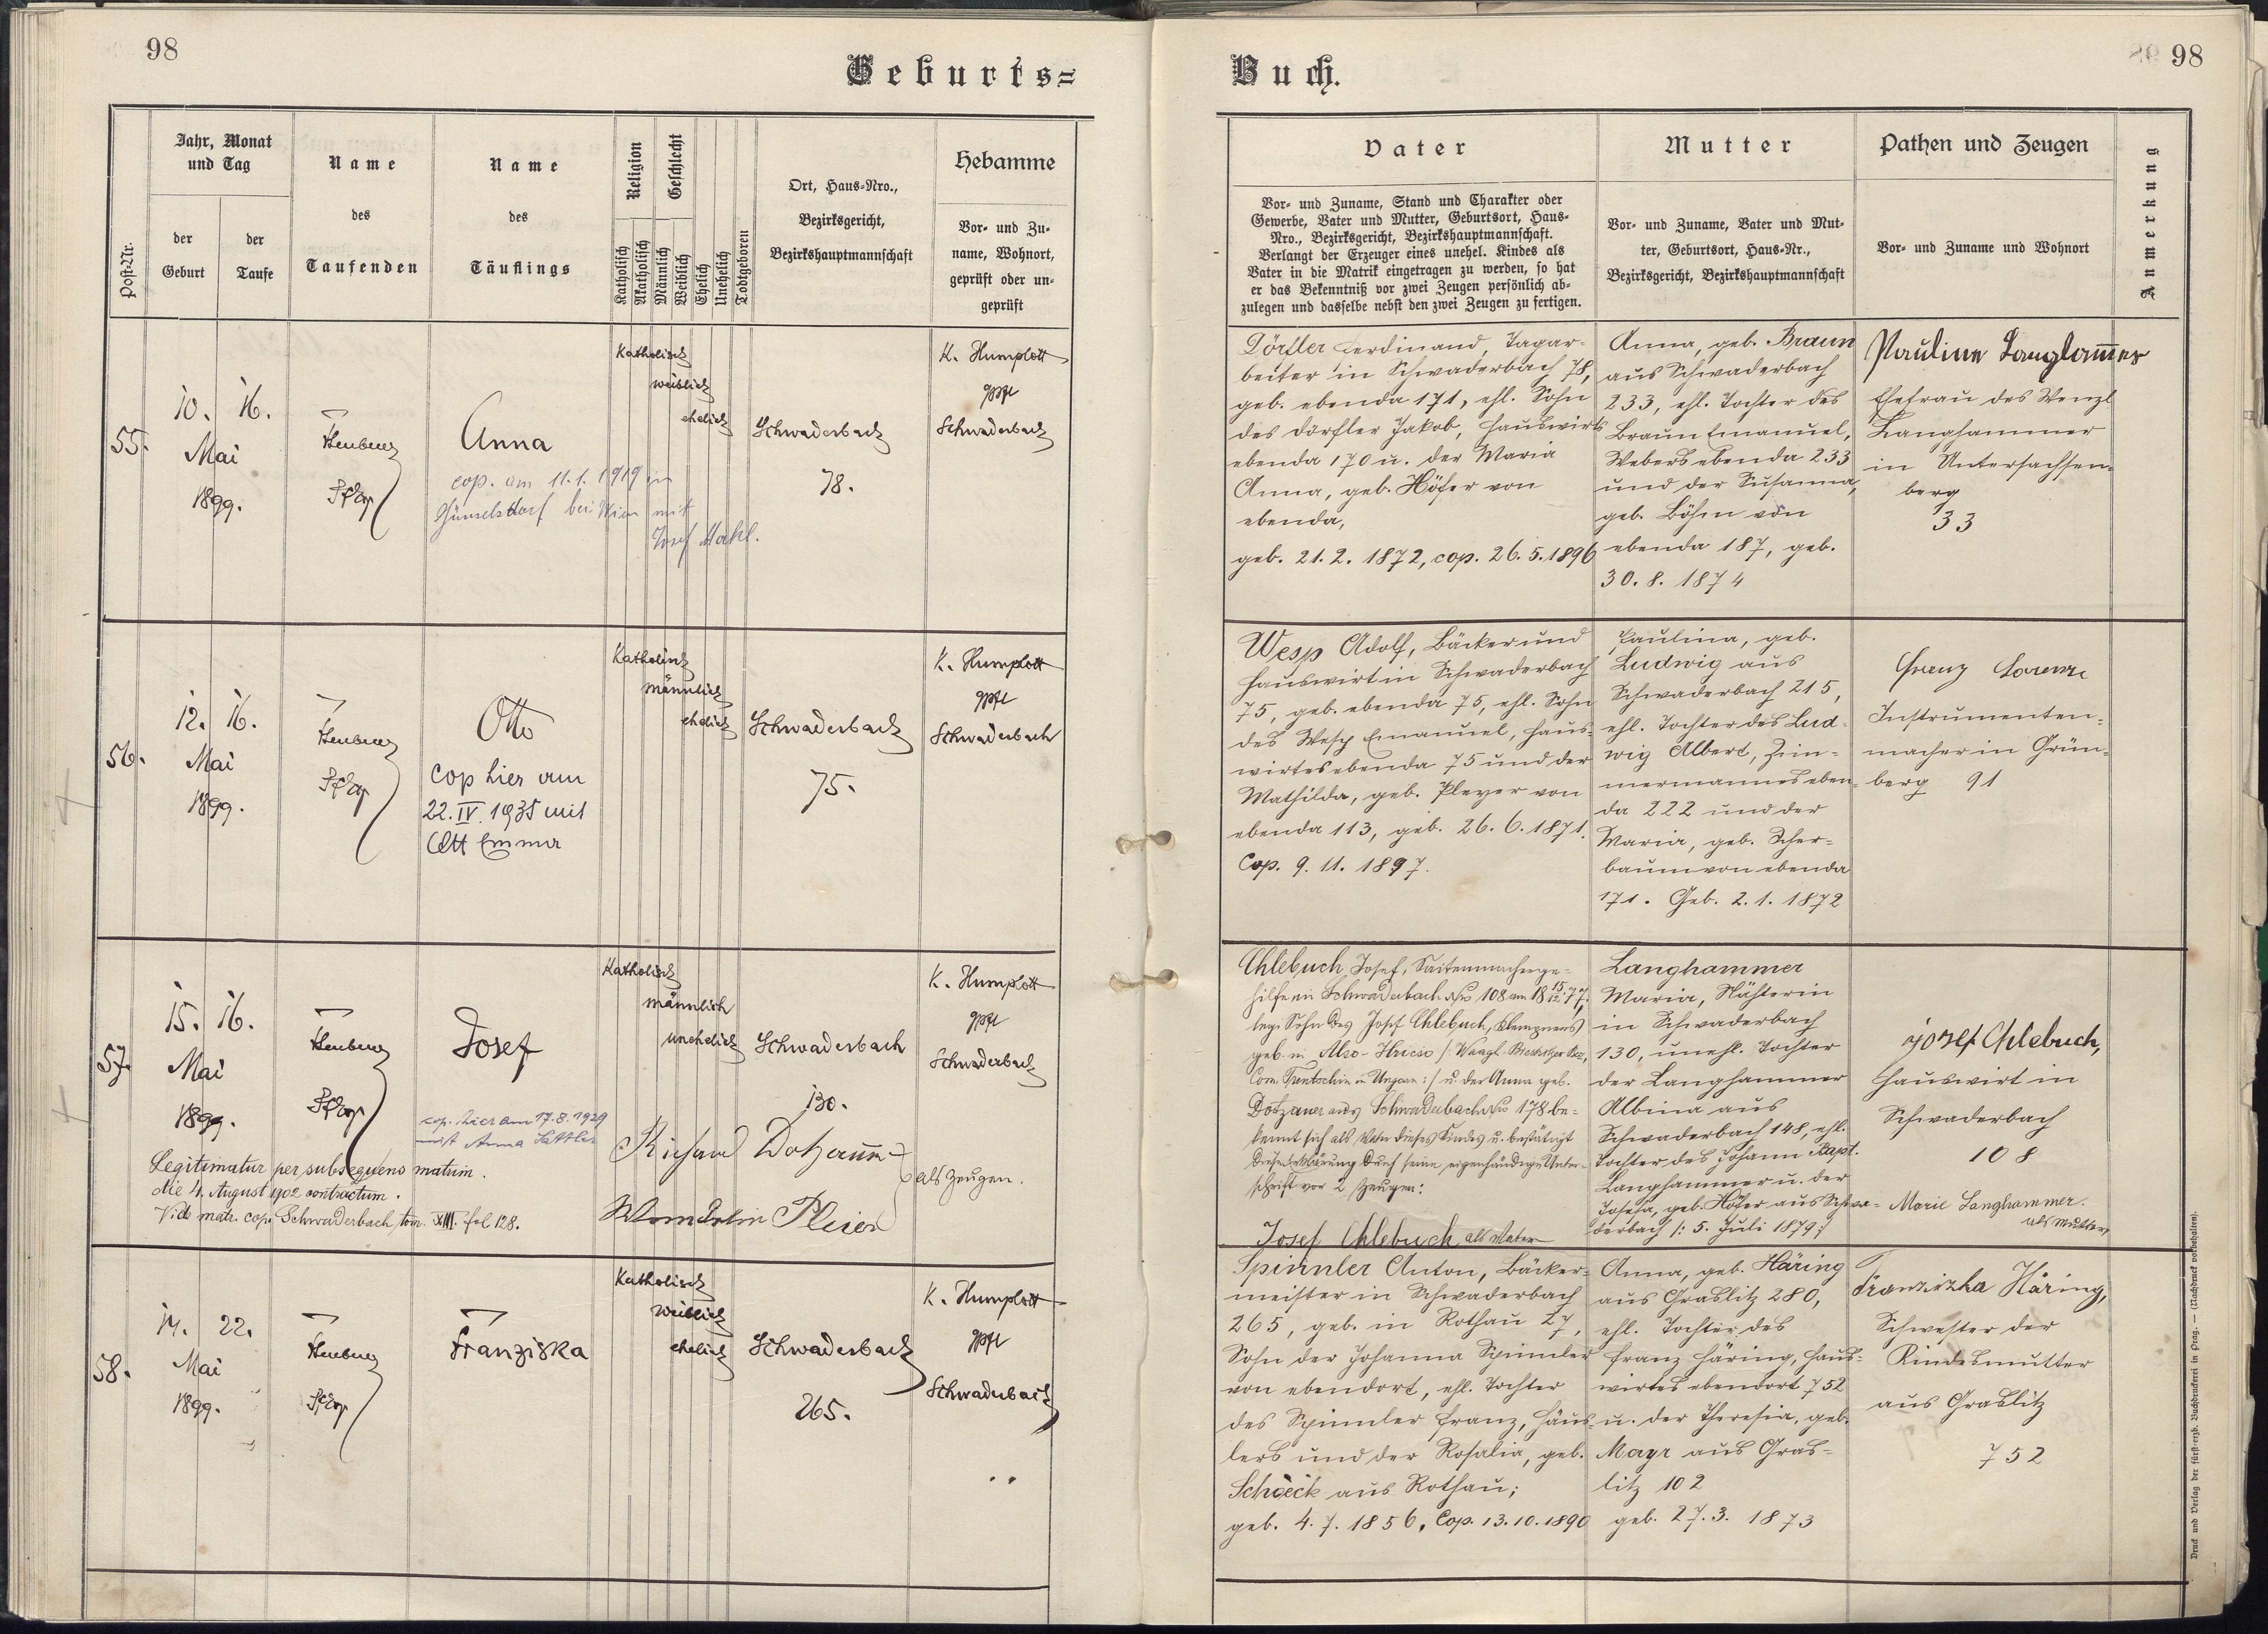 98
Geburts=
Post-Nr.
Jahr, Monat
und Tag
der
Geburt
der
Taufe
Name
des
Taufenden
Name
des
Täuflings
Religion
Katholisch
Akatholisch
Geschlecht
Männlich
Weiblich
Ehelich
Unehelich
Todtgeboren
Ort, Haus=Nro.,
Bezirksgericht,
Bezirkshauptmannschaft
Hebamme
Vor= und Zu=
name, Wohnort,
geprüft oder un=
geprüft
55.
10. 16.
Mai
1899.
Anna
cop. am 11.1.1919 in
Günselsdorf bei Wien mit
Josef Makl.
Katholisch
weiblich
ehelich
Schwaderbach
78.
K. Humplott
gpft
Schwaderbach
56.
12. 16.
Mai
1899.
Otto
cop hier am
22.IV.1935 mit
Ott Emma
Katholisch
männlich
ehelich
Schwaderbach
75.
K. Humplott
gpft
Schwaderbach
57.
15. 16.
Mai
1899.
Josef
cop. hier am 17.8.1929
mit Anna Sattler
Legitimatur per subsequens matrim.
die 4. August 1902 contractum.
Vid. matr. cop. Schwaderbach tom. XIII. fol 128.
Katholisch
männlich
unehelich
Schwaderbach
130.
Richard Dotzauer
als Zeugen.
Wendelin Pleier
K. Humplott
gpft
Schwaderbach
58.
14. 22.
Mai
1899.
Franziska
Katholisch
weiblich
ehelich
Schwaderbach
265.
K. Humplott
gpft
Schwaderbach
98
Buch.
Vater
Vor= und Zuname, Stand und Charakter oder
Gewerbe, Vater und Mutter, Geburtsort, Haus=
Nro., Bezirksgericht, Bezirkshauptmannschaft.
Verlangt der Erzeuger eines unehel. Kindes als
Vater in die Matrik eingetragen zu werden, so hat
er das Bekenntniß vor zwei Zeugen persönlich ab=
zulegen und dasselbe nebst den zwei Zeugen zu fertigen.
Mutter
Vor= und Zuname, Vater und Mut=
ter, Geburtsort, Haus=Nr.,
Bezirksgericht, Bezirkshauptmannschaft
Pathen und Zeugen
Vor= und Zuname und Wohnort
Anmerkung
Dörfler Ferdinand, Tagar-
beiter in Schwaderbach 78,
geb. ebenda 171, ehl. Sohn
des Dörfler Jakob, Hauswirts
ebenda 170 u. der Maria
Anna, geb. Höfer von
ebenda,
geb. 21.2.1872, cop. 26.5.1896
Anna, geb. Braun
aus Schwaderbach
233, ehl. Tochter des
Braun Emanuel,
Webers ebenda 233
und der Susanna,
geb. Böhm von
ebenda 187, geb.
30.8.1874
Pauline Langhammer
Ehefrau des Wenzl
Langhammer
in Untersachsen=
berg
33
Wesp Adolf, Bäcker und
Hauswirt in Schwaderbach
75, geb. ebenda 75, ehl. Sohn
des Wesp Emanuel, Haus-
wirtes ebenda 75 und der
Mathilda, geb. Pleyer von
ebenda 113, geb. 26.6.1871.
Cop. 9.11.1897.
Paulina, geb.
Ludwig aus
Schwaderbach 215,
ehl. Tochter des Lud-
wig Albert, Zim-
mermannes eben-
da 222 und der
Maria, geb. Scher-
baum von ebenda
171. Geb. 2.1.1872
Franz Lorenz
Instrumenten=
macher in Grün=
berg 91
Chlebuch Josef, Saitenmacherge-
hilfe in Schwaderbach No 108 am 18 15/12 77,
leg. Sohn des Josef Chlebuch, Klempners
geb. in Also-Hricso /: Waagh-Bistritzer Bez.,
Com. Trentschin in Ungarn :/ u. der Anna geb.
Dotzauer aus Schwaderbach No 178 be=
kennt sich als Vater dieses Kindes u. bestätigt
diese Erklärung durch seine eigenhändige Unter-
schrift vor 2 Zeugen:
Josef Chlebuch als Vater
Langhammer
Maria, Nähterin
in Schwaderbach
130, unehl. Tochter
der Langhammer
Albina aus
Schwaderbach 148, ehl.
Tochter des Johann Bapt.
Langhammer u. der
Josefa, geb. Höfer aus Schwa=
derbach /: 5. Juli 1879 :/
Josef Chlebuch,
Hauswirt in
Schwaderbach
108
Marie Langhammer.
als Mutter
Spinnler Anton, Bäcker=
meister in Schwaderbach
265, geb. in Rothau 27,
Sohn der Johanna Spinnler
von ebendort, ehl. Tochter
des Spinnler Franz, Häus-
lers und der Rosalia, geb.
Schöck aus Rothau;
geb. 4.7.1856, Cop. 13.10.1890
Anna, geb. Häring
aus Graslitz 280,
ehl. Tochter des
Franz Häring, Haus-
wirtes ebendort 752
u. der Theresia, geb.
Mayr aus Gras=
litz 102
geb. 27.3.1873
Franziska Häring,
Schwester der
Kindesmutter
aus Graslitz
752
Druck und Verlag der fürst-erzb. Buchdruckerei in Prag. — (Nachdruck vorbehalten).